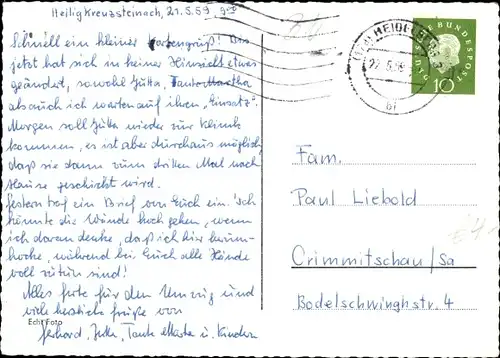 Heiligkreuzsteinach, 21.5.59, 9°°
Schnell ein kleiner Kartengruß! Bis
jetzt hat sich in keiner Hinsicht etwas
geändert, sowohl Jutta, Tante Martha
als auch ich warten auf ihren „Einsatz".
Morgen soll Jutta wieder zur Klinik
kommen, es ist aber durchaus möglich,
daß sie dann zum dritten Mal nach
Hause geschickt wird.
Gestern traf ein Brief von Euch ein. Ich
könnte die Wände hoch gehen, wenn
ich daran denke, daß ich hier herum-
hocke, während bei Euch alle Hände
voll zu tun sind!
Alles Gute für den Umzug und
viele herzliche Grüße von
Gerhard, Jutta, Tante Martha u. Kinder
Echt Foto
HEIDELBERG
DEUTSCHE BUNDESPOST
10
Fam.
Paul Liebold
Crimmitschau/Sa
Bodelschwinghstr. 4